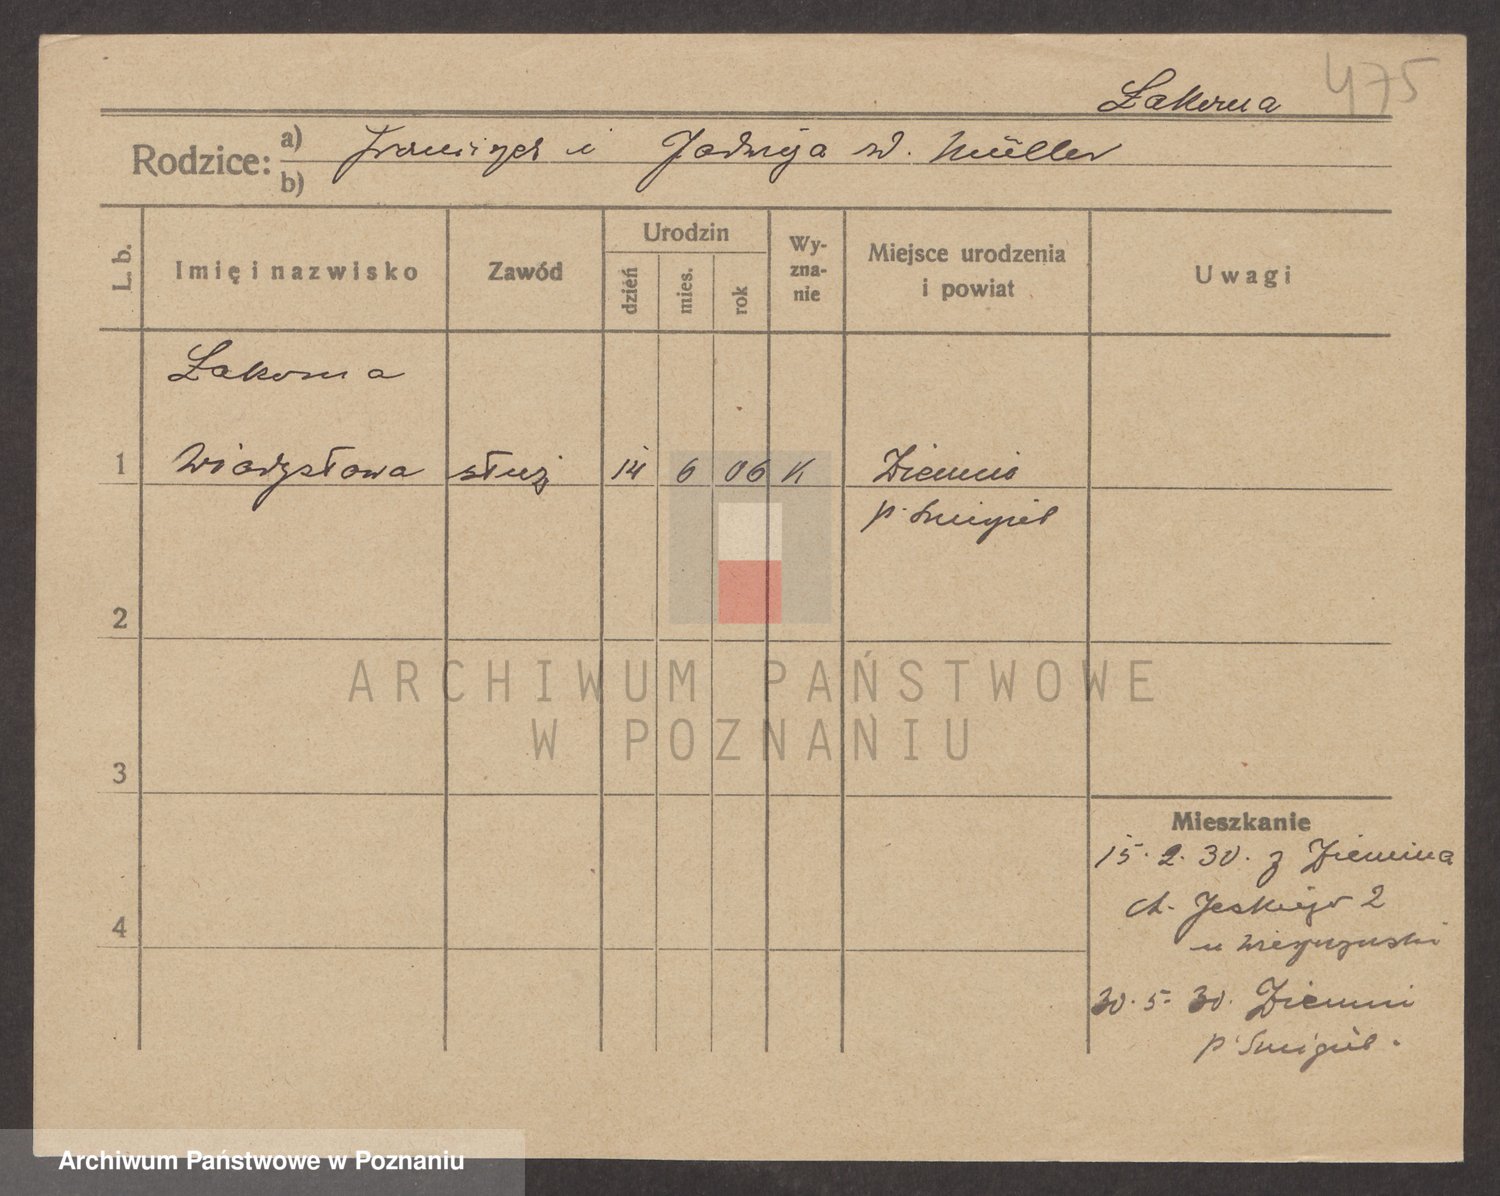 475
Łakoma
Rodzice: a) Franciszek i Jadwiga w. Müller
b)
L. b.
Imię i nazwisko
Zawód
Urodzin
dzień
mies.
rok
Wy-
zna-
nie
Miejsce urodzenia
i powiat
Uwagi
Łakoma
1 Władysława służ 14 6 06 K
p. Śmigiel
2
3
4
Mieszkanie
15. 2. 30. z
2
u
30. 5. 30.
p. Śmigiel.
ARCHIWUM PAŃSTWOWE
W POZNANIU
Archiwum Państwowe w Poznaniu